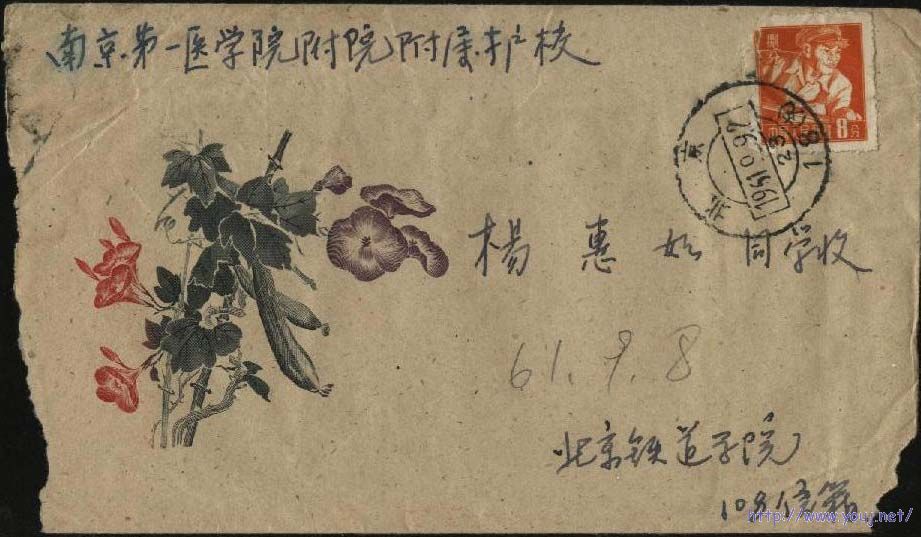 南京第一医学院附院附属产校
8分
北京
杨惠始同学收
61.9.8
北京铁道学院
109信箱
http://www.youj.net/